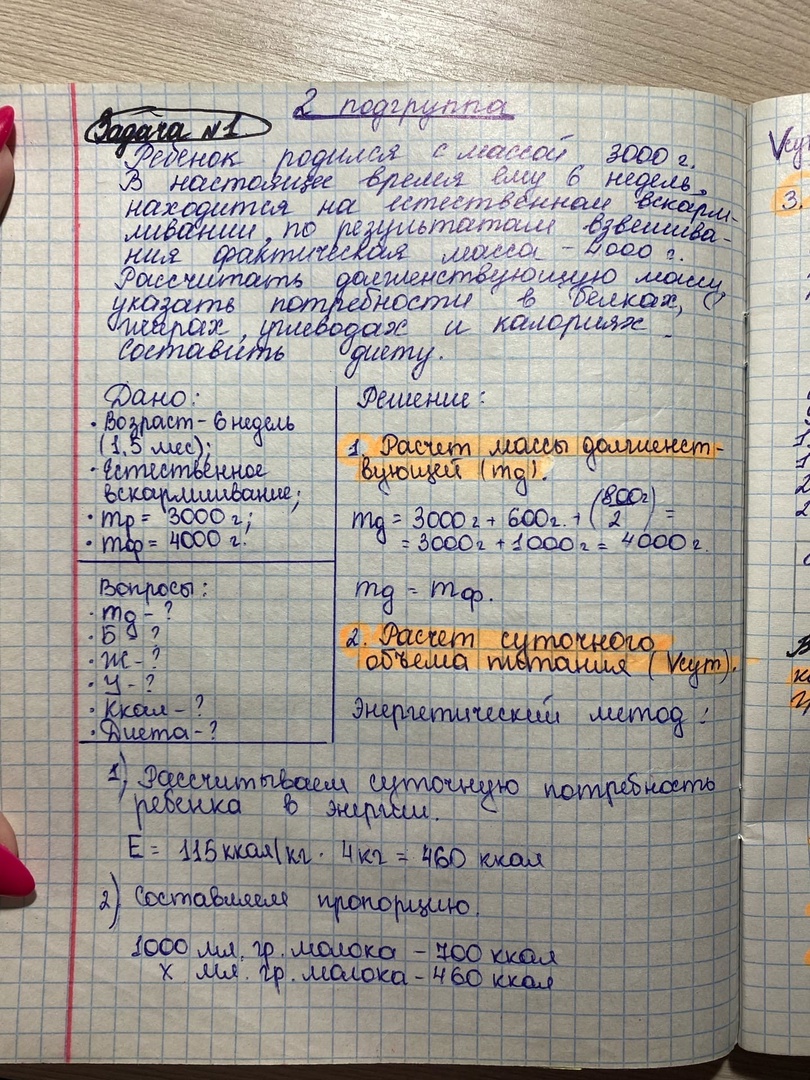 2 подгруппа
Задача №1
Ребенок родился с массой 3000 г.
В настоящее время ему 6 недель,
находится на естественном вскарм-
ливании, по результатам взвешива-
ния фактическая масса - 4000 г.
Рассчитать долженствующую массу,
указать потребности в белках,
жирах, углеводах и калориях.
Составить диету.
Дано:
· Возраст - 6 недель
(1,5 мес);
· Естественное
вскармливание;
· mр = 3000 г;
· mф = 4000 г.
Вопросы:
· mд - ?
· Б - ?
· Ж - ?
· У - ?
· Ккал - ?
· Диета - ?
Решение:
1. Расчет массы долженст-
вующей (mд).
mд = 3000 г + 600 г. + (800г/2) =
= 3000г + 1000 г = 4000 г.
mд = mф.
2. Расчет суточного
объема питания (Vсут).
Энергетический метод:
1) Рассчитываем суточную потребность
ребенка в энергии.
E = 115 ккал/кг · 4 кг = 460 ккал
2) Составляем пропорцию.
1000 мл. гр. молока - 700 ккал
x мл. гр. молока - 460 ккал
3.